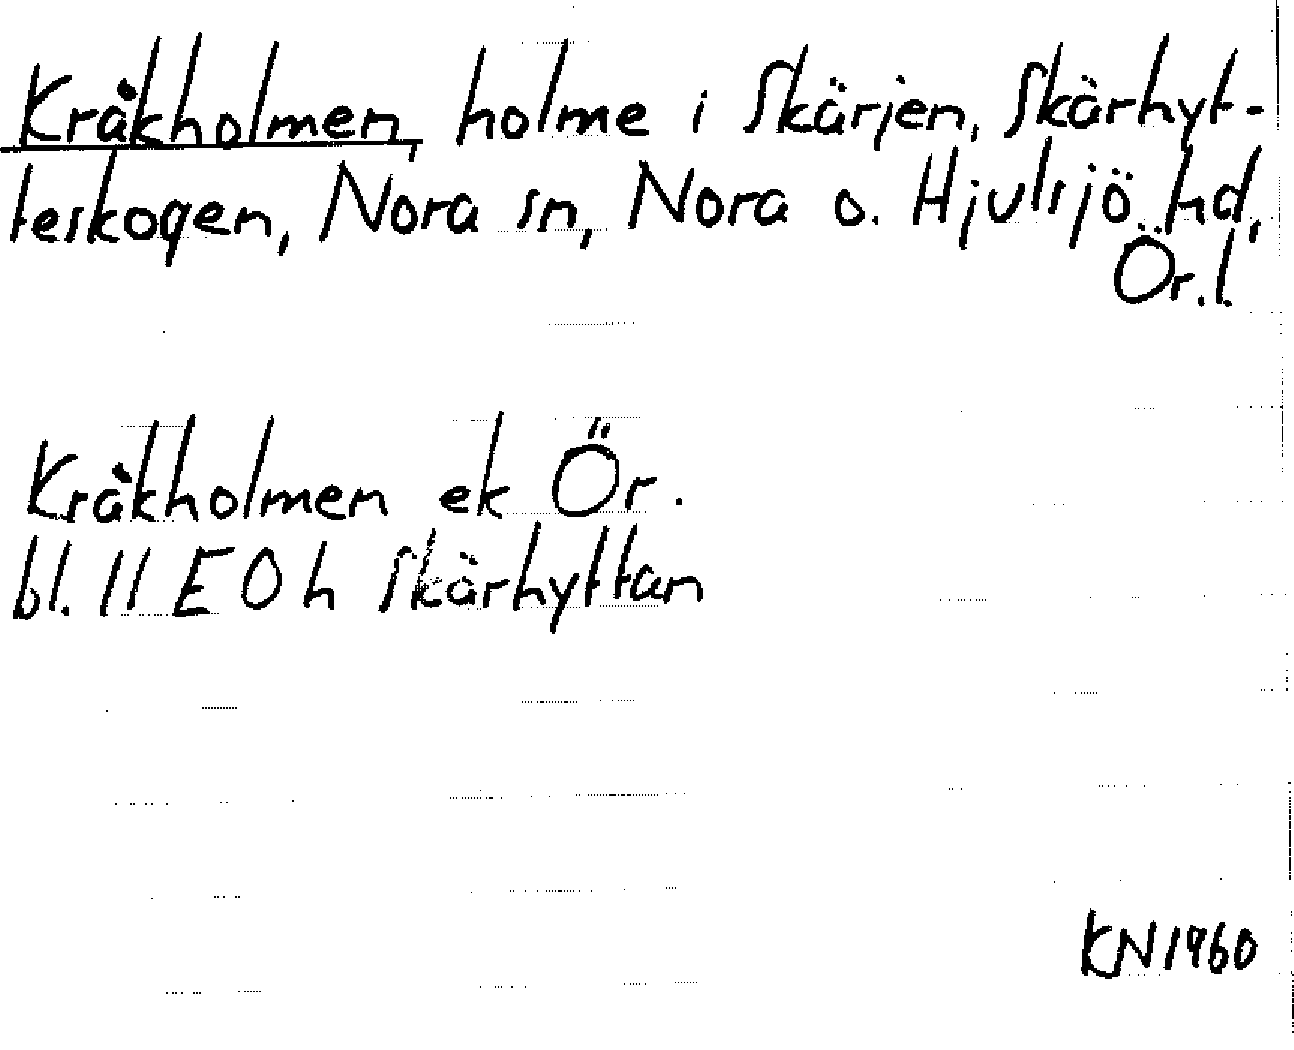 Kråkholmen, holme i Skärjen, Skärhyt-
teskogen, Nora sn, Nora o. Hjulsjö hd,
Ör. l.
Kråkholmen ek Ör.
bl. 11 E 0 h Skärhyttan
KN 1960